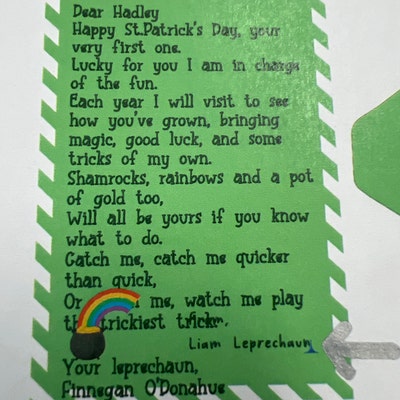 Dear Hadley
Happy St.Patrick's Day, your
very first one.
Lucky for you I am in charge
of the fun.
Each year I will visit to see
how you've grown, bringing
magic, good luck, and some
tricks of my own.
Shamrocks, rainbows and a pot
of gold too,
Will all be yours if you know
what to do.
Catch me, catch me quicker
than quick,
Or me, watch me play
trickiest
Liam Leprechaun
Your leprechaun,
Finnegan O'Donahue